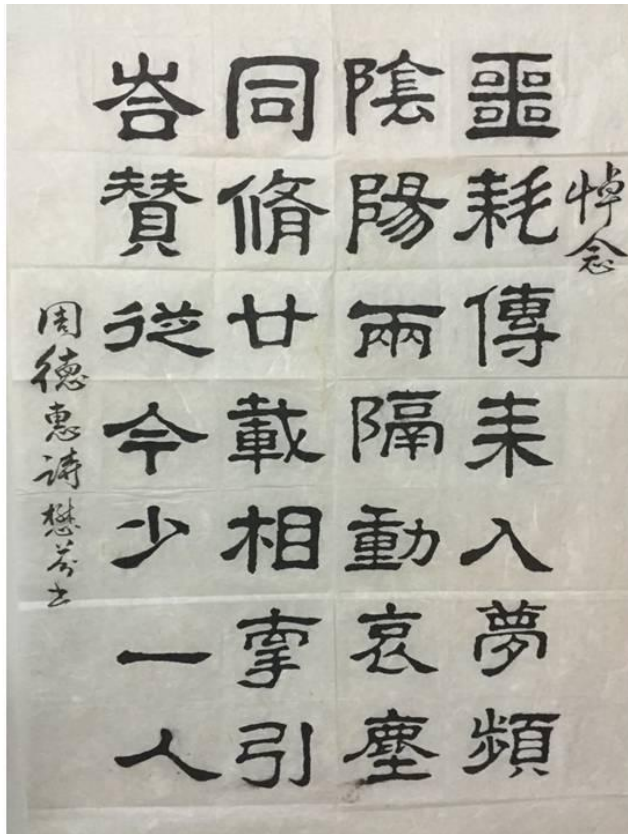 悼念
噩耗傳来入夢頻
陰陽兩隔動哀塵
同脩廿載相牽引
峇贊從今少一人
周德惠詩懋芬书